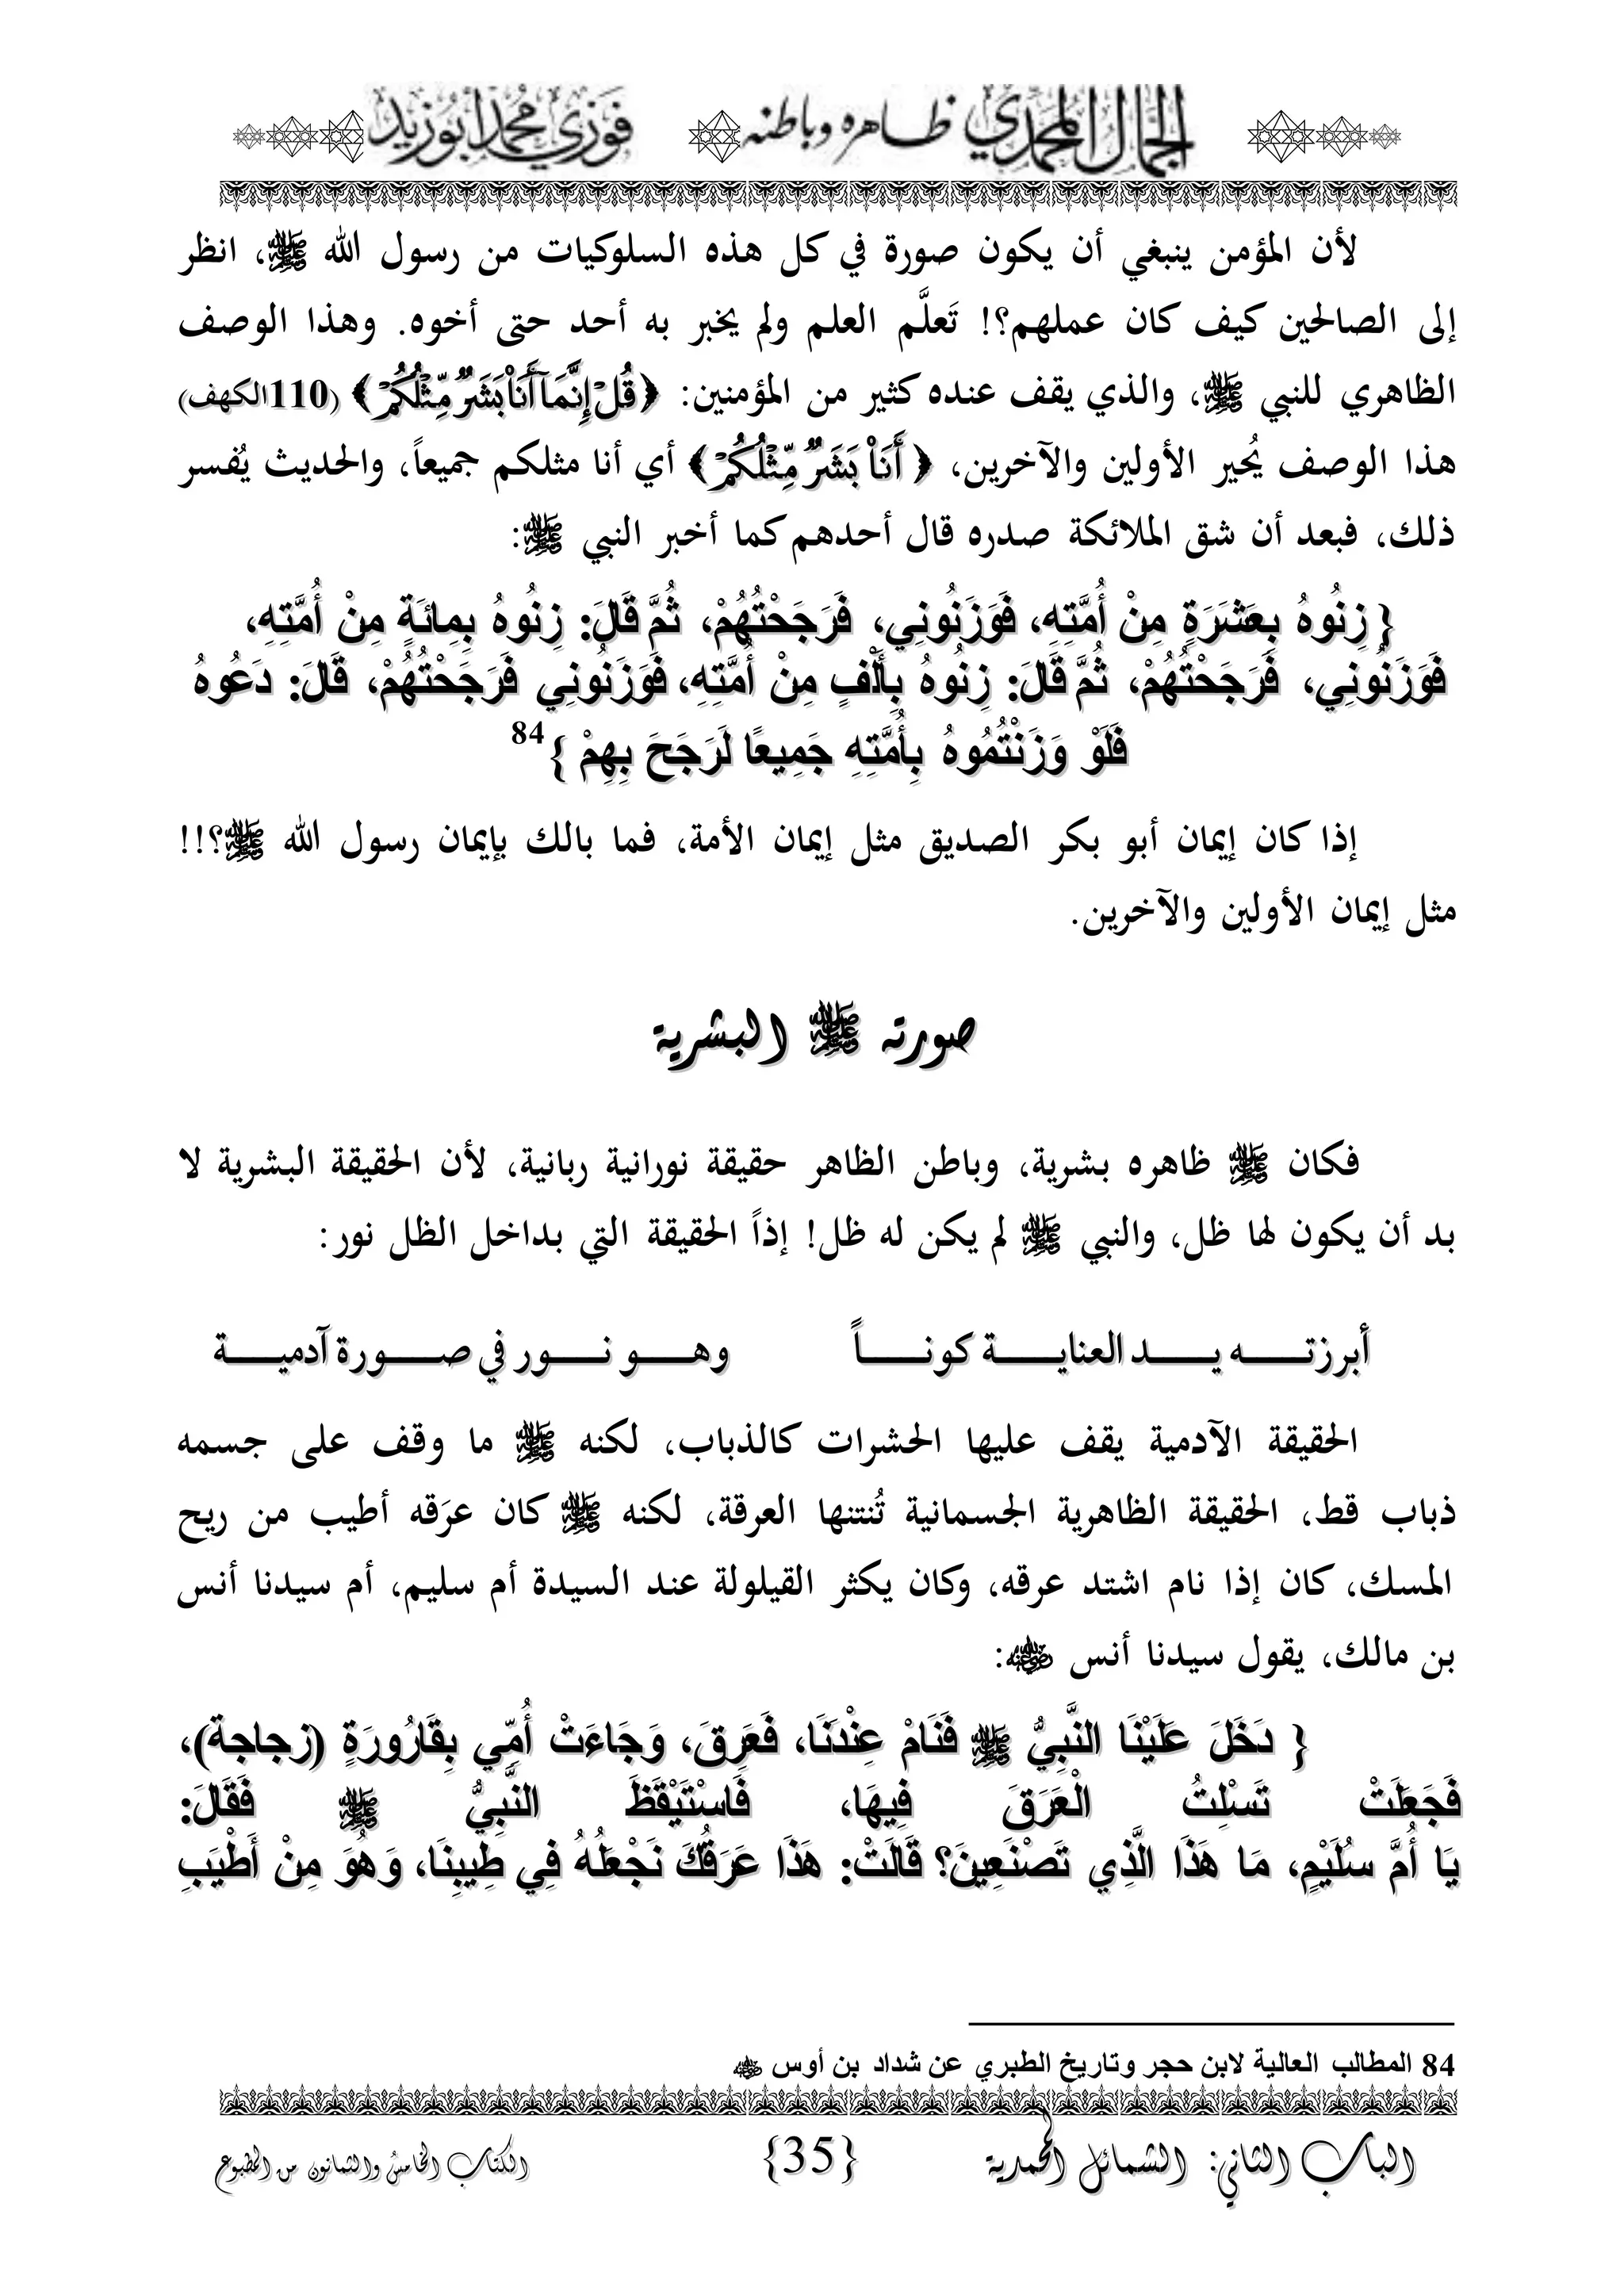 الجمال المحمدي ظاهره وباطنه فوزي محمد أبوزيد
لأن المؤمن ينبغي أن يكون صورة في كل هذه السلوكيات من رسول الله ﷺ، انظر
إلى الصالحين كيف كان عملهم؟! تَعلَّم العلم ولم يخبر به أحد حتى أخوه. وهذا الوصف
الظاهري للنبي ﷺ، والذي يقف عنده كثير من المؤمنين: ﴿ قُلْ إِنَّمَآ أَنَا۠ بَشَرٌ مِّثْلُكُمْ ﴾ (110الكهف)
هذا الوصف يُحير الأولين والآخرين، ﴿ أَنَا۠ بَشَرٌ مِّثْلُكُمْ ﴾ أي أنا مثلكم جميعاً، والحديث يُفسر
ذلك، فبعد أن شق الملائكة صدره قال أحدهم كما أخبر النبي ﷺ:
{ زِنُوهُ بِعَشَرَةٍ مِنْ أُمَّتِهِ، فَوَزَنُونِي، فَرَجَحْتُهُمْ، ثُمَّ قَالَ: زِنُوهُ بِمِائَةٍ مِنْ أُمَّتِهِ،
فَوَزَنُونِي، فَرَجَحْتُهُمْ، ثُمَّ قَالَ: زِنُوهُ بِأَلْفٍ مِنْ أُمَّتِهِ، فَوَزَنُونِي فَرَجَحْتُهُمْ، قَالَ: دَعُوهُ
فَلَوْ وَزَنْتُمُوهُ بِأُمَّتِهِ جَمِيعًا لَرَجَحَ بِهِمْ }84
إذا كان إيمان أبو بكر الصديق مثل إيمان الأمة، فما بالك بإيمان رسول الله ﷺ؟!!
مثل إيمان الأولين والآخرين.
صورته ﷺ البشرية
فكان ﷺ ظاهره بشرية، وباطن الظاهر حقيقة نورانية ربانية، لأن الحقيقة البشرية لا
بد أن يكون لها ظل، والنبي ﷺ لم يكن له ظل! إذاً الحقيقة التي بداخل الظل نور:
أبرزتـــه يـــد العنايـــة كونـــاً وهـــو نـــور في صـــورة آدميـــة
الحقيقة الآدمية يقف عليها الحشرات كالذباب، لكنه ﷺ ما وقف على جسمه
ذباب قط، الحقيقة الظاهرية الجسمانية تُنتنها العرقة، لكنه ﷺ كان عرَقه أطيب من ريح
المسك، كان إذا نام اشتد عرقه، وكان يكثر القيلولة عند السيدة أم سليم، أم سيدنا أنس
بن مالك، يقول سيدنا أنس رضي الله عنه:
{ دَخَلَ عَلَيْنَا النَّبِيُّ ﷺ فَنَامَ عِنْدَنَا، فَعَرِقَ، وَجَاءَتْ أُمِّي بِقَارُورَةٍ (زجاجة)،
فَجَعَلَتْ تَسْلِتُ الْعَرَقَ فِيهَا، فَاسْتَيْقَظَ النَّبِيُّ ﷺ فَقَالَ:
يَا أُمَّ سُلَيْمٍ، مَا هَذَا الَّذِي تَصْنَعِينَ؟ قَالَتْ: هَذَا عَرَقُكَ نَجْعَلُهُ فِي طِيبِنَا، وَهُوَ مِنْ أَطْيَبِ
84 المطالب العالية لابن حجر وتاريخ الطبري عن شداد بن أوس رضي الله عنه
الباب الثاني: الشمائل المحمدية {35} الكتاب الخامس والثمانون من المطبوع